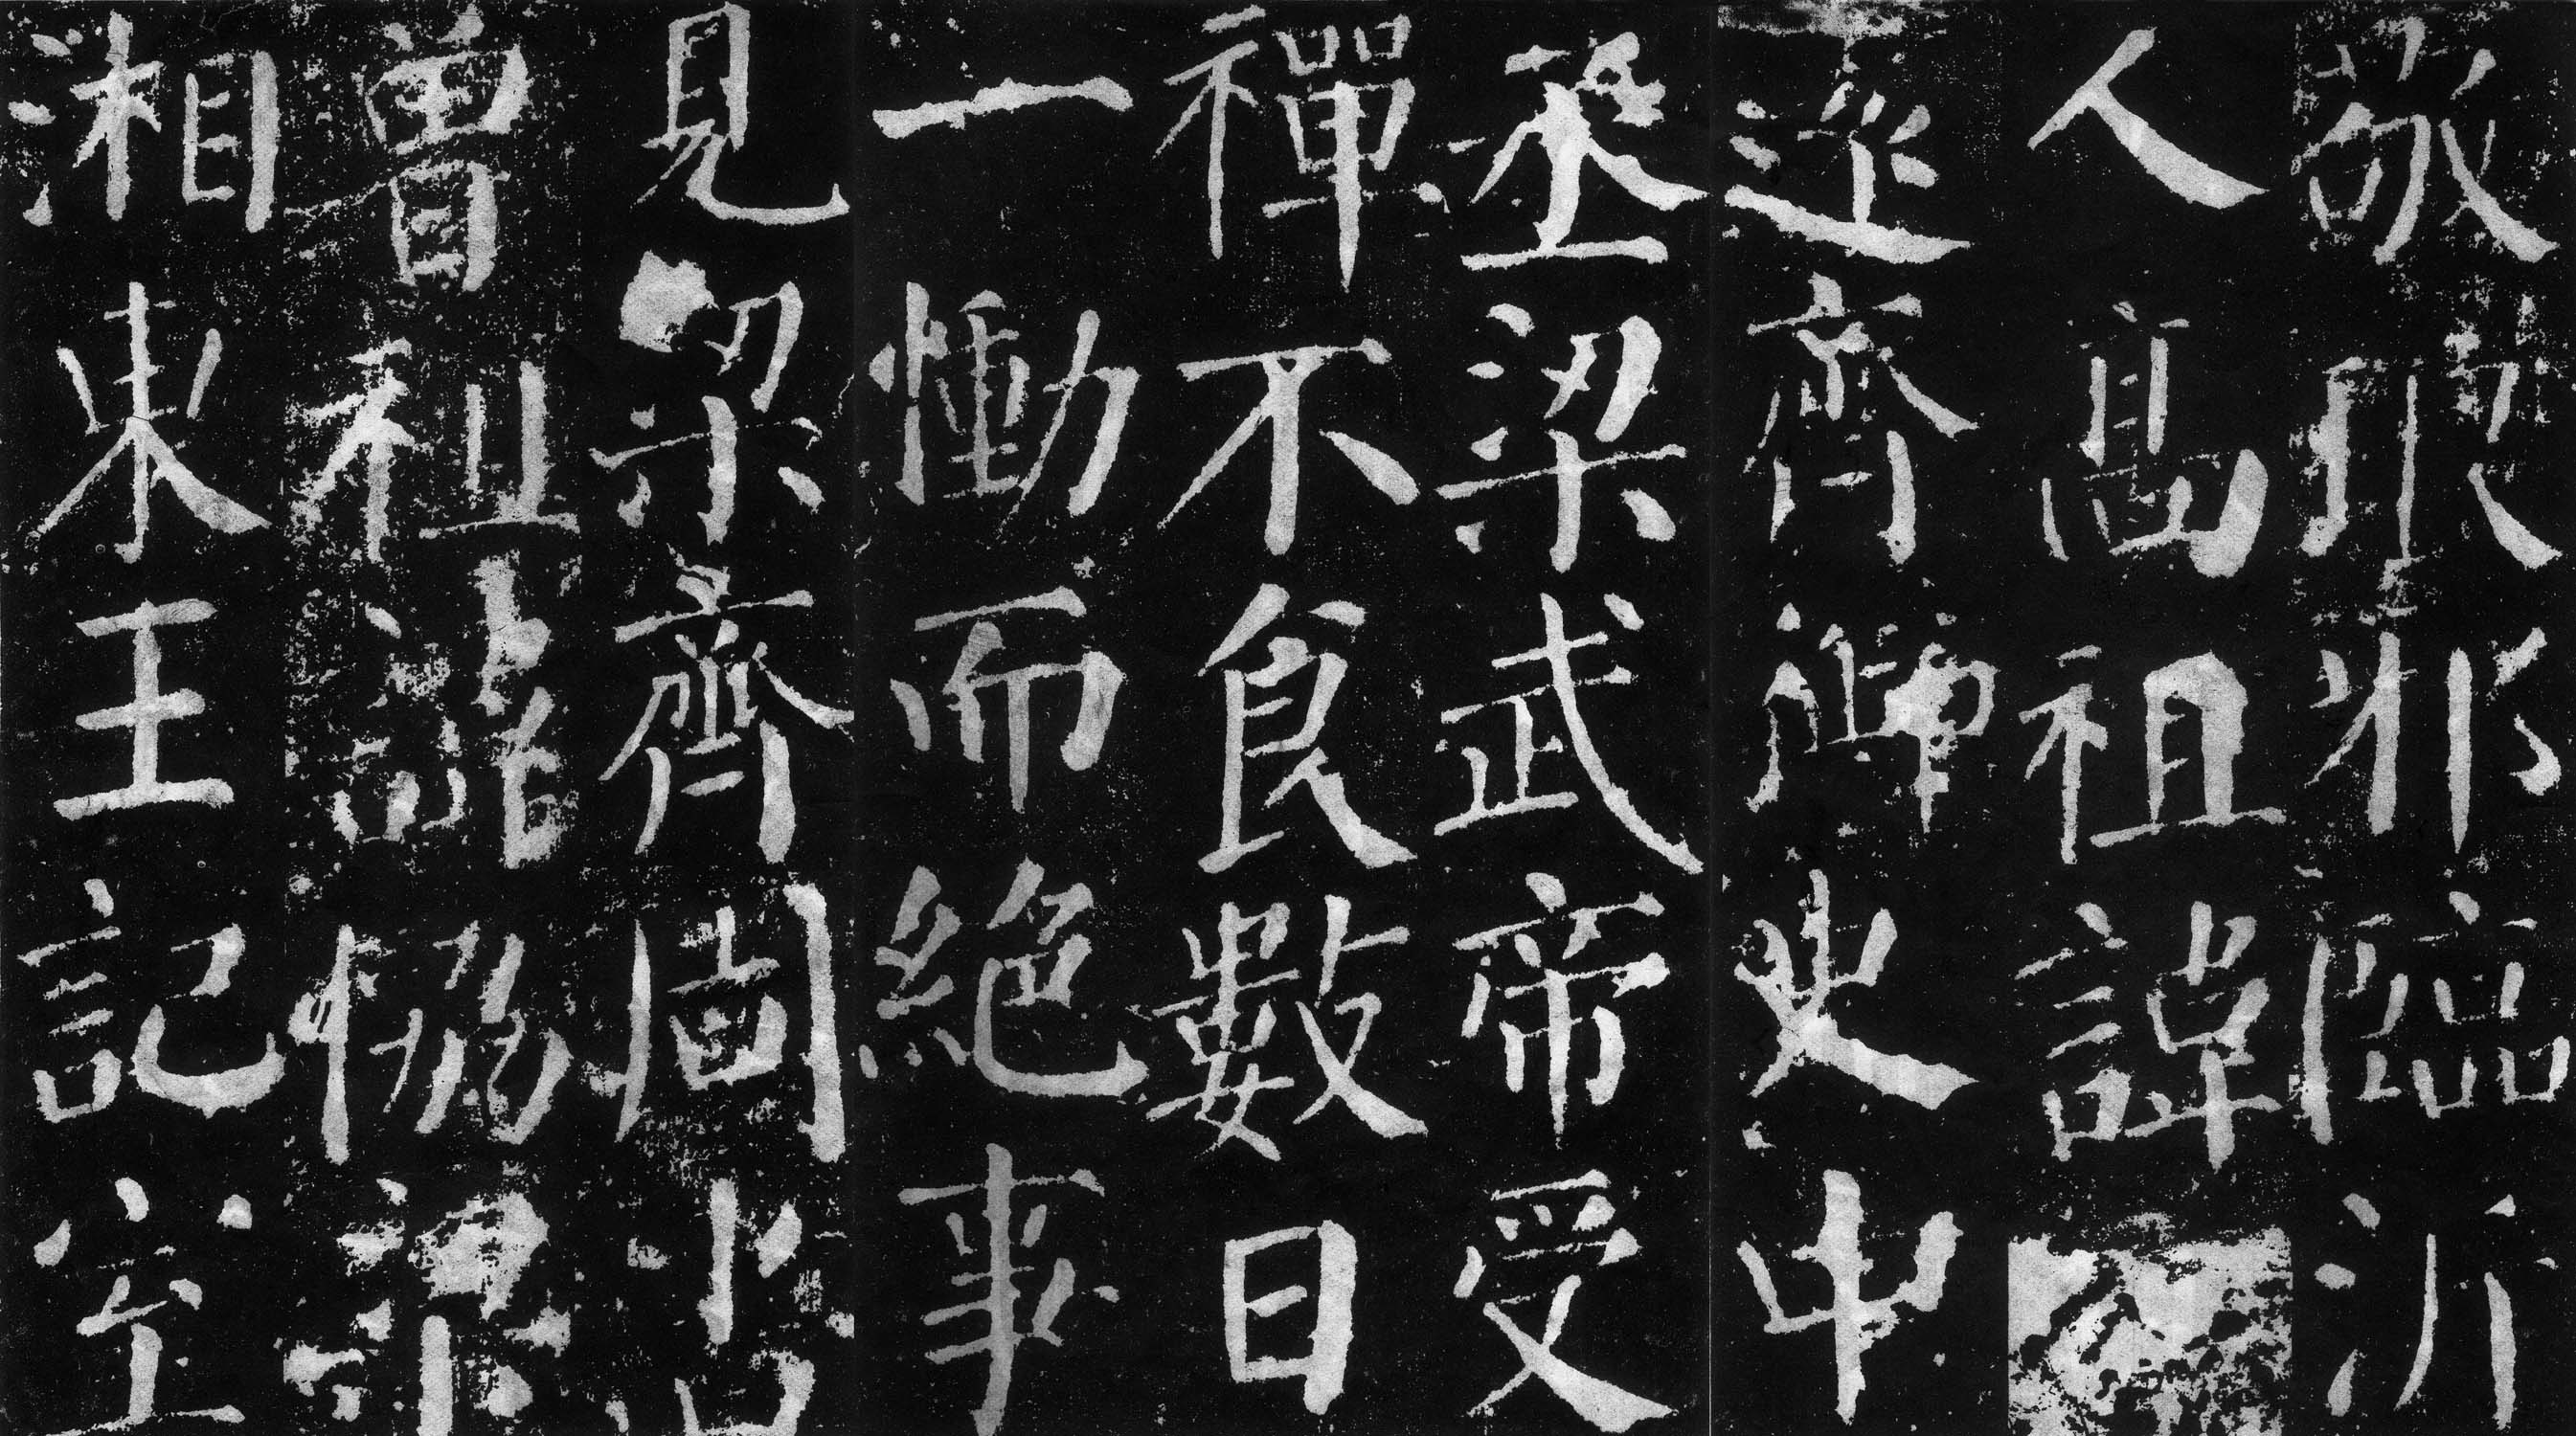 敬琅邪臨沂
人高祖諱
巡齊御史中
丞梁武帝受
禪不食數日
一慟而絕事
見梁齊周書
曾祖諱協梁
湘東王記室